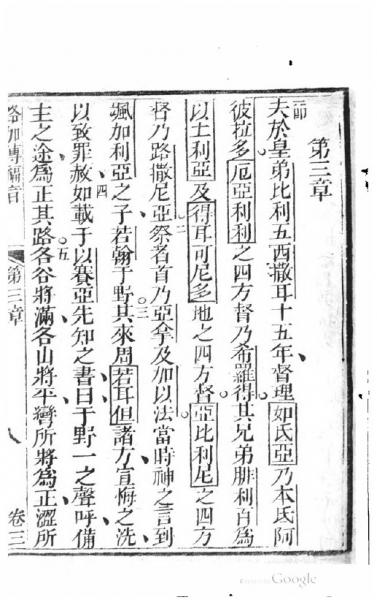 第三章
一節
夫於皇弟比利五西撒耳十五年督理如氏亞乃本氏阿
彼拉多厄亞利利之四方督乃希羅得其兄弟腓利百為
以土利亞及得耳可尼多地之四方督亞比利尼之四方
督乃路撒尼亞祭者首乃亞拿及加以法當時神之言到
二
三
颯加利亞之子若翰于野其來周若耳但諸方宣悔之洗
以致罪赦如載于以賽亞先知之書曰于野一之聲呼備
四
主之途為正其路各谷將滿各山將平彎所將為正澀所
五
路加傳福音
第三章
八
卷三
Google